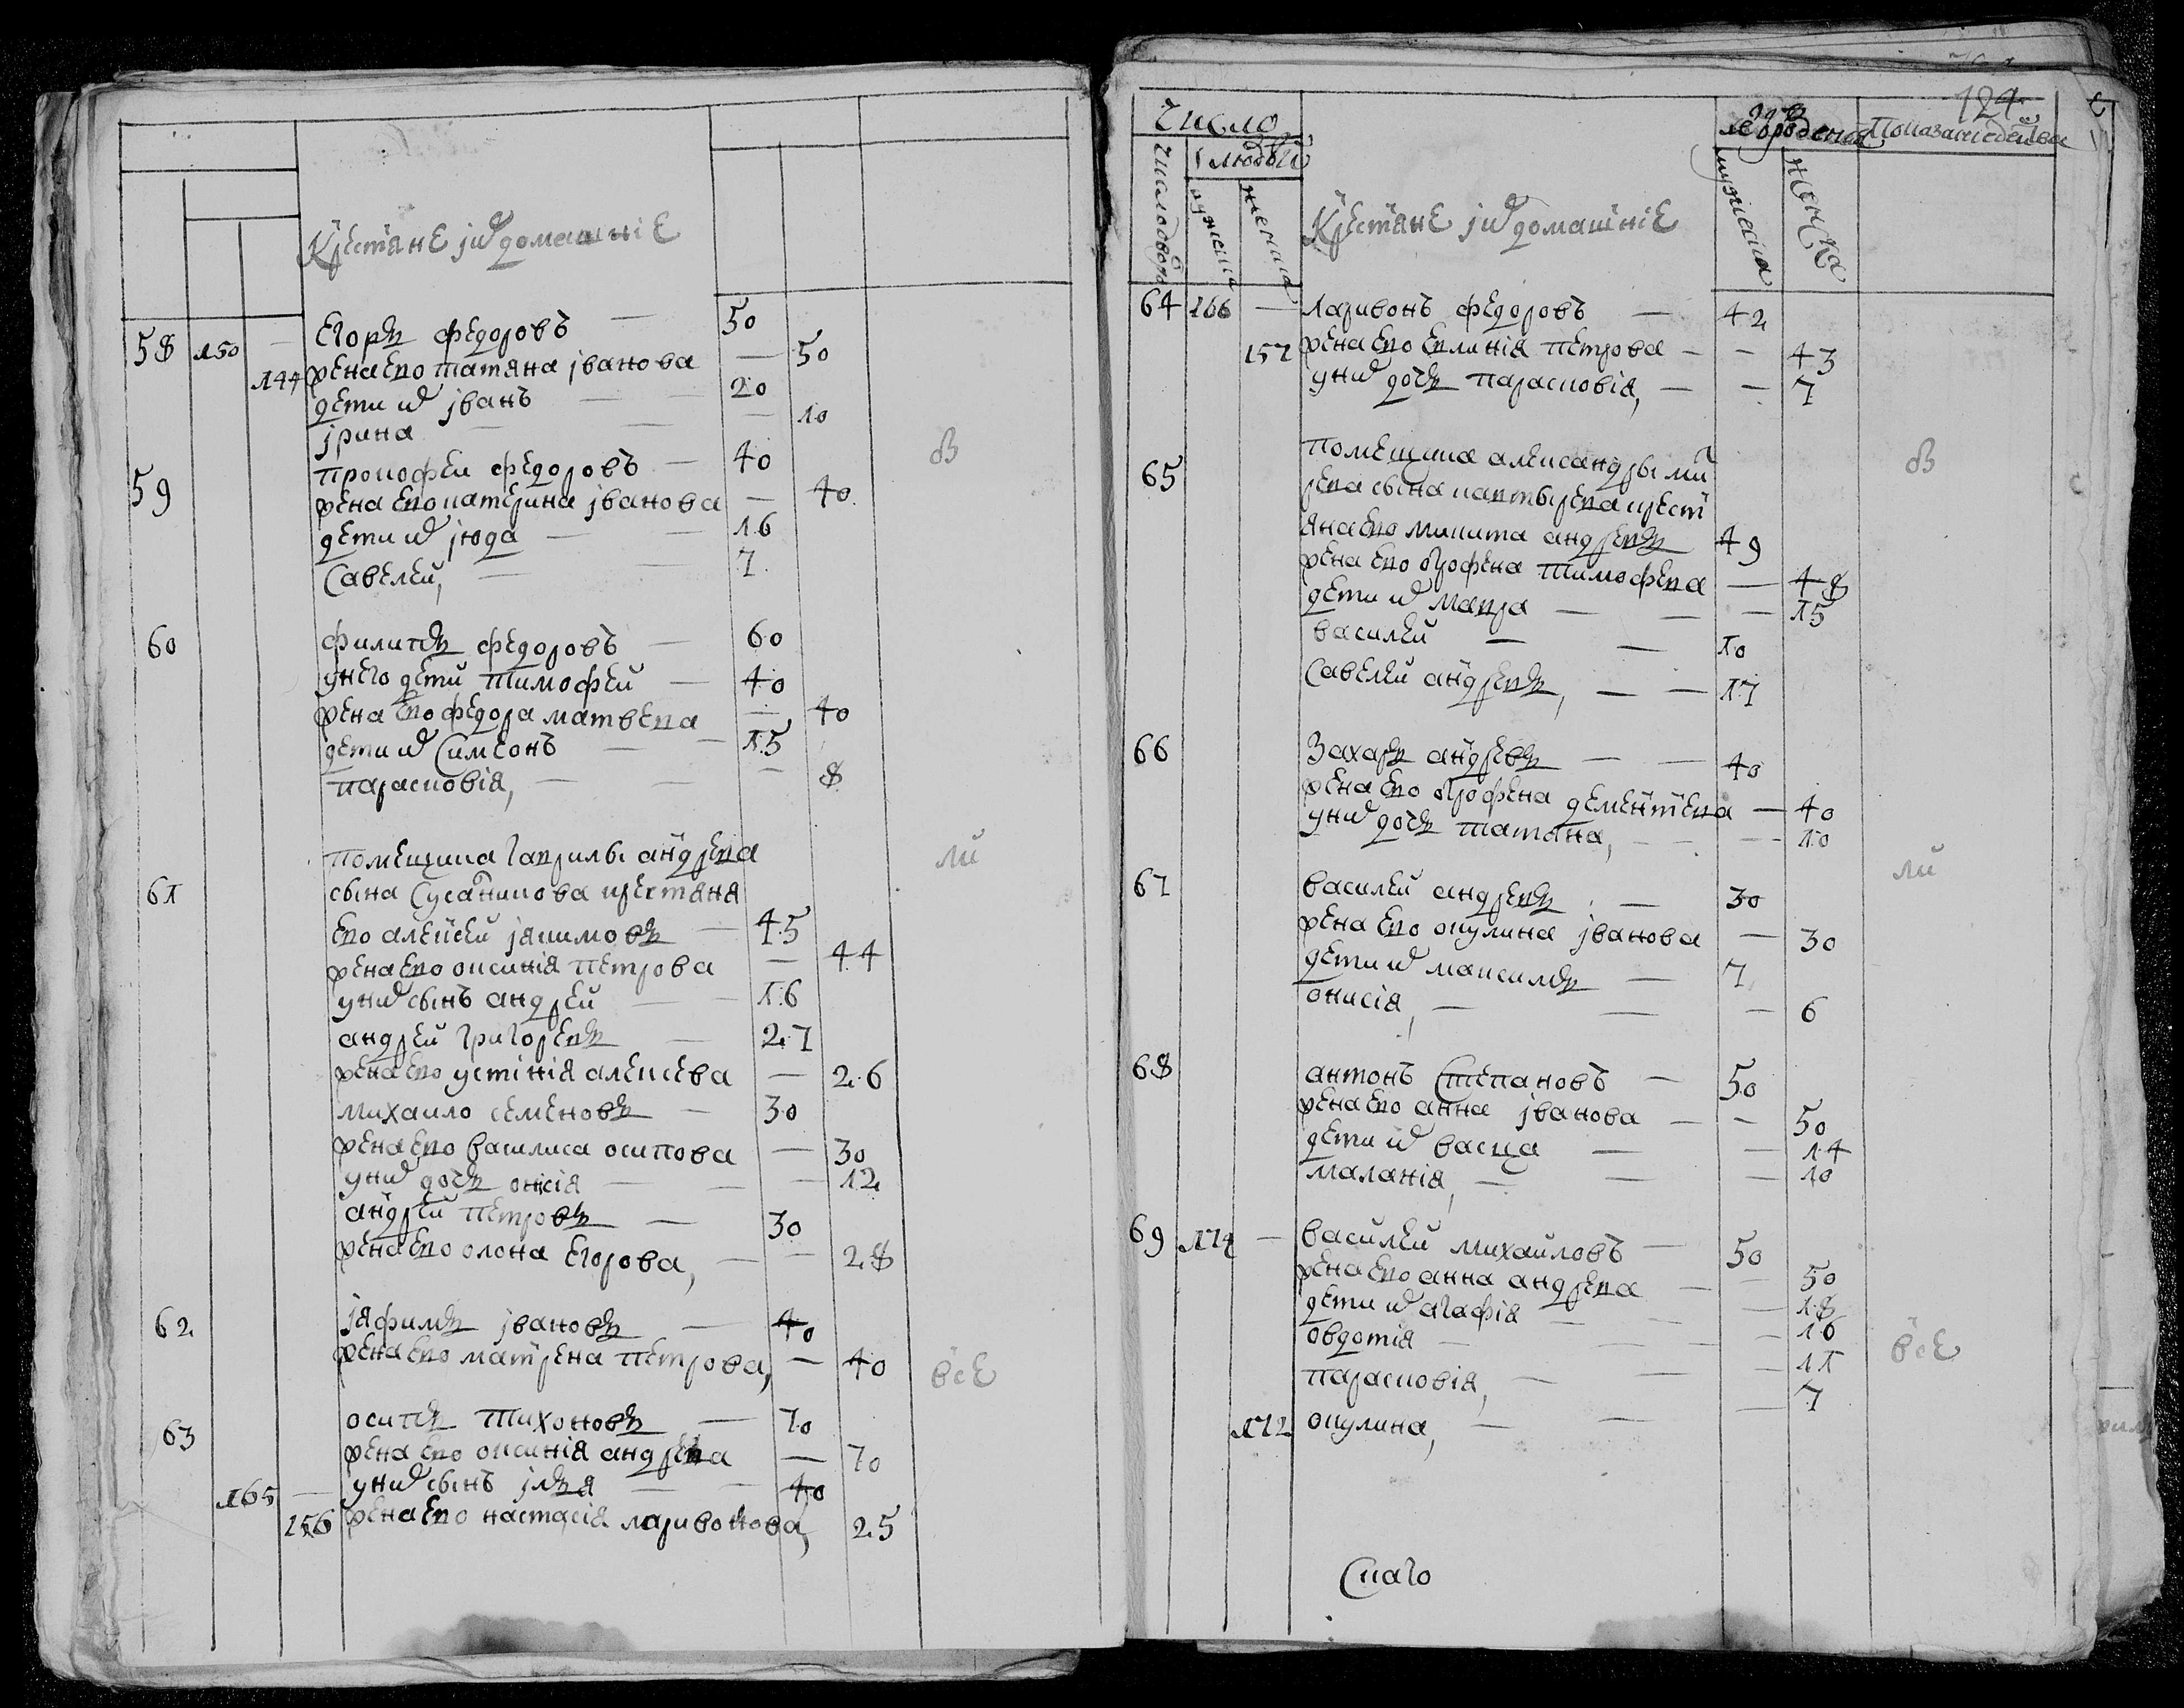 Крестяне и их домашние
58 150 — Егоръ федоровъ — 50
144 жена ево татяна иванова — 50
дети их иванъ — 20
ирина — 10
59 прокофеи федоровъ — 40
жена ево катерина иванова — 40
дети их июда — 16
Савелеи, — 7
60 филипъ федоровъ — 60
у него дети тимофеи — 40
жена ево федора матвева — 40
дети их Симеонъ — 15
парасковия, — 8
помещика гаврилы андрева
61 сына Сусаникова крестяня
ево алексеи иякимовъ — 45
жена ево оксиния петрова — 44
у них сынъ андреи — 16
андреи григоревъ — 27
жена ево устиния алексева — 26
михаило семеновъ — 30
жена ево василиса осипова — 30
у них дочь онисия — 12
андреи петровъ — 30
жена ево олона Егорова, — 28
62 ияфимъ ивановъ — 40
жена ево матрена петрова, — 40
63 осипъ тихоновъ — 70
жена ево оксиния андрева — 70
165 — у них сынъ илья — 40
156 жена ево настасия ларивонова, 25
об
ли
все
124
Число
людей
число дворовъ
мужеска
женска
Крестяне и их домашние
от рождения
мужеска
женска
Показание действа
64 166 — Ларивонъ федоровъ — 42
157 жена ево евлиния петрова — 43
у них дочь парасковия, — 7
помещика александры ми
65 рева сына каптырева крест
яна ево микита андревъ 49
жена ево огрофена тимофева — 48
дети их мавра — 15
василеи — 10
Савелеи андревъ, — 17
66 Захаръ андревъ — 40
жена ево огрофена дементева — 40
у них дочь татяна, — 10
67 василеи андревъ — 30
жена ево окулина иванова — 30
дети их максимъ — 7
онисия, — 6
68 антонъ Степановъ — 50
жена ево анна иванова — 50
дети их васца — 14
малания, — 10
69 171 — василеи михаиловъ — 50
жена ево анна андрева — 50
дети их агафия — 18
овдотия — 16
парасковия, — 11
172 окулина, — 7
об
ли
все
Скаго